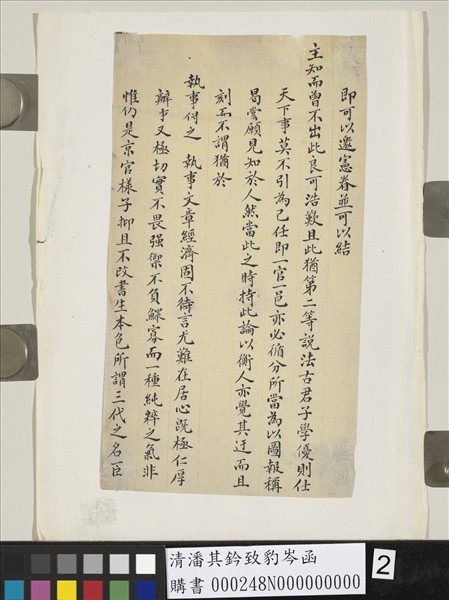 即可以邀憲眷並可以結
主知而曾不出此良可浩歎且此猶第二等說法古君子學優則仕
天下事莫不引為己任即一官一邑亦必循分所當為以圖報稱
曷嘗願見知於人然當此之時持此論以衡人亦覺其迂而且
刻而不謂猶於
執事得之 執事文章經濟固不待言尤難在居心既極仁厚
辦事又極切實不畏强禦不負鰥寡而一種純粹之氣非
惟仍是京官樣子抑且不改書生本色所謂三代之名臣
清潘其鈐致豹岑函
購書 000248N000000000
2